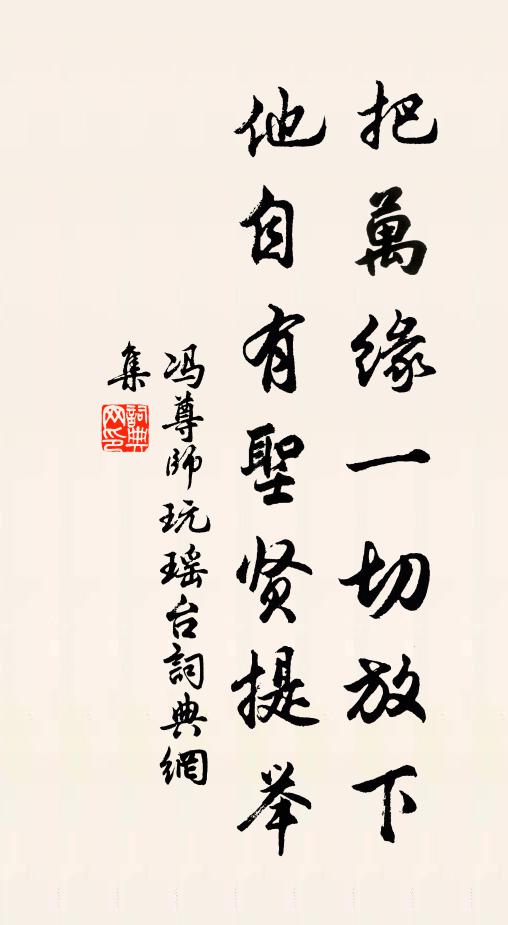 把萬緣一切放下
他自有聖贤提举
冯尊師玩瑶台詞典網
集
詞典
网印